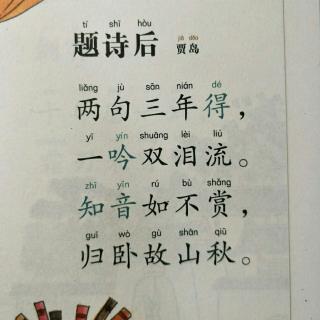 tí shī hòu
题诗后 贾岛
jiǎ dǎo
liǎng jù sān nián dé
两句三年得，
yī yín shuāng lèi liú
一吟双泪流。
zhī yīn rú bù shǎng
知音如不赏，
guī wò gù shān qiū
归卧故山秋。